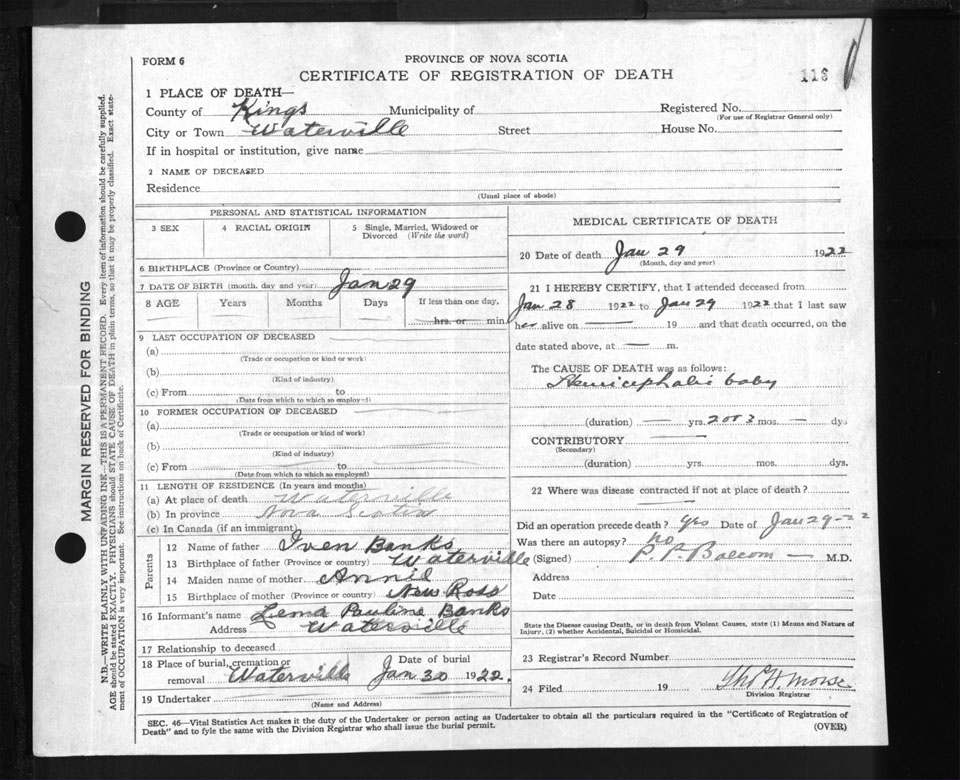 FORM 6
PROVINCE OF NOVA SCOTIA
CERTIFICATE OF REGISTRATION OF DEATH
116
1 PLACE OF DEATH—
County of Kings Municipality of Registered No.
(For use of Registrar General only)
City or Town Waterville Street House No.
If in hospital or institution, give name
2 NAME OF DECEASED
Residence
(Usual place of abode)
PERSONAL AND STATISTICAL INFORMATION
3 SEX 4 RACIAL ORIGIN 5 Single, Married, Widowed or
Divorced (Write the word)
6 BIRTHPLACE (Province or Country)
7 DATE OF BIRTH (month, day and year) Jan 29
8 AGE Years Months Days If less than one day,
hrs. or min.
9 LAST OCCUPATION OF DECEASED
(a)
(Trade or occupation or kind or work)
(b)
(Kind of industry)
(c) From to
(Date from which to which so employed)
10 FORMER OCCUPATION OF DECEASED
(a)
(Trade or occupation or kind of work)
(b)
(Kind of industry)
(c) From to
(Date from which to which so employed)
11 LENGTH OF RESIDENCE (In years and months)
(a) At place of death Waterville
(b) In province Nova Scotia
(c) In Canada (if an immigrant)
Parents
12 Name of father Iven Banks
13 Birthplace of father (Province or country) Waterville
14 Maiden name of mother Annie
15 Birthplace of mother (Province or country) New Ross
16 Informant's name Lema Pauline Banks
Address Waterville
17 Relationship to deceased
18 Place of burial, cremation or Date of burial
removal Waterville Jan 30 1922.
19 Undertaker
(Name and Address)
MEDICAL CERTIFICATE OF DEATH
20 Date of death Jan 29 1922
(Month, day and year)
21 I HEREBY CERTIFY, that I attended deceased from
Jan 28 1922 to Jan 29 1922 that I last saw
her alive on 19 and that death occurred, on the
date stated above, at m.
The CAUSE OF DEATH was as follows:
baby
(duration) yrs. 2 or 3 mos. dys
CONTRIBUTORY
(Secondary)
(duration) yrs. mos. dys.
22 Where was disease contracted if not at place of death?
Did an operation precede death? Yes Date of Jan 29-22
Was there an autopsy? no
(Signed) P. P. Balcom M.D.
Address
Date
State the Disease causing Death, or in death from Violent Causes, state (1) Means and Nature of
Injury, (2) whether Accidental, Suicidal or Homicidal.
23 Registrar's Record Number
24 Filed 19 Thos H. Morse
Division Registrar
SEC. 46—Vital Statistics Act makes it the duty of the Undertaker or person acting as Undertaker to obtain all the particulars required in the "Certificate of Registration of
Death" and to fyle the same with the Division Registrar who shall issue the burial permit. (OVER)
MARGIN RESERVED FOR BINDING
N.B.—WRITE PLAINLY WITH UNFADING INK—THIS IS A PERMANENT RECORD. Every item of information should be carefully supplied.
AGE should be stated EXACTLY. PHYSICIANS should STATE CAUSE OF DEATH in plain terms, so that it may be properly classified. Exact state-
ment of OCCUPATION is very important. See instructions on back of Certificate.